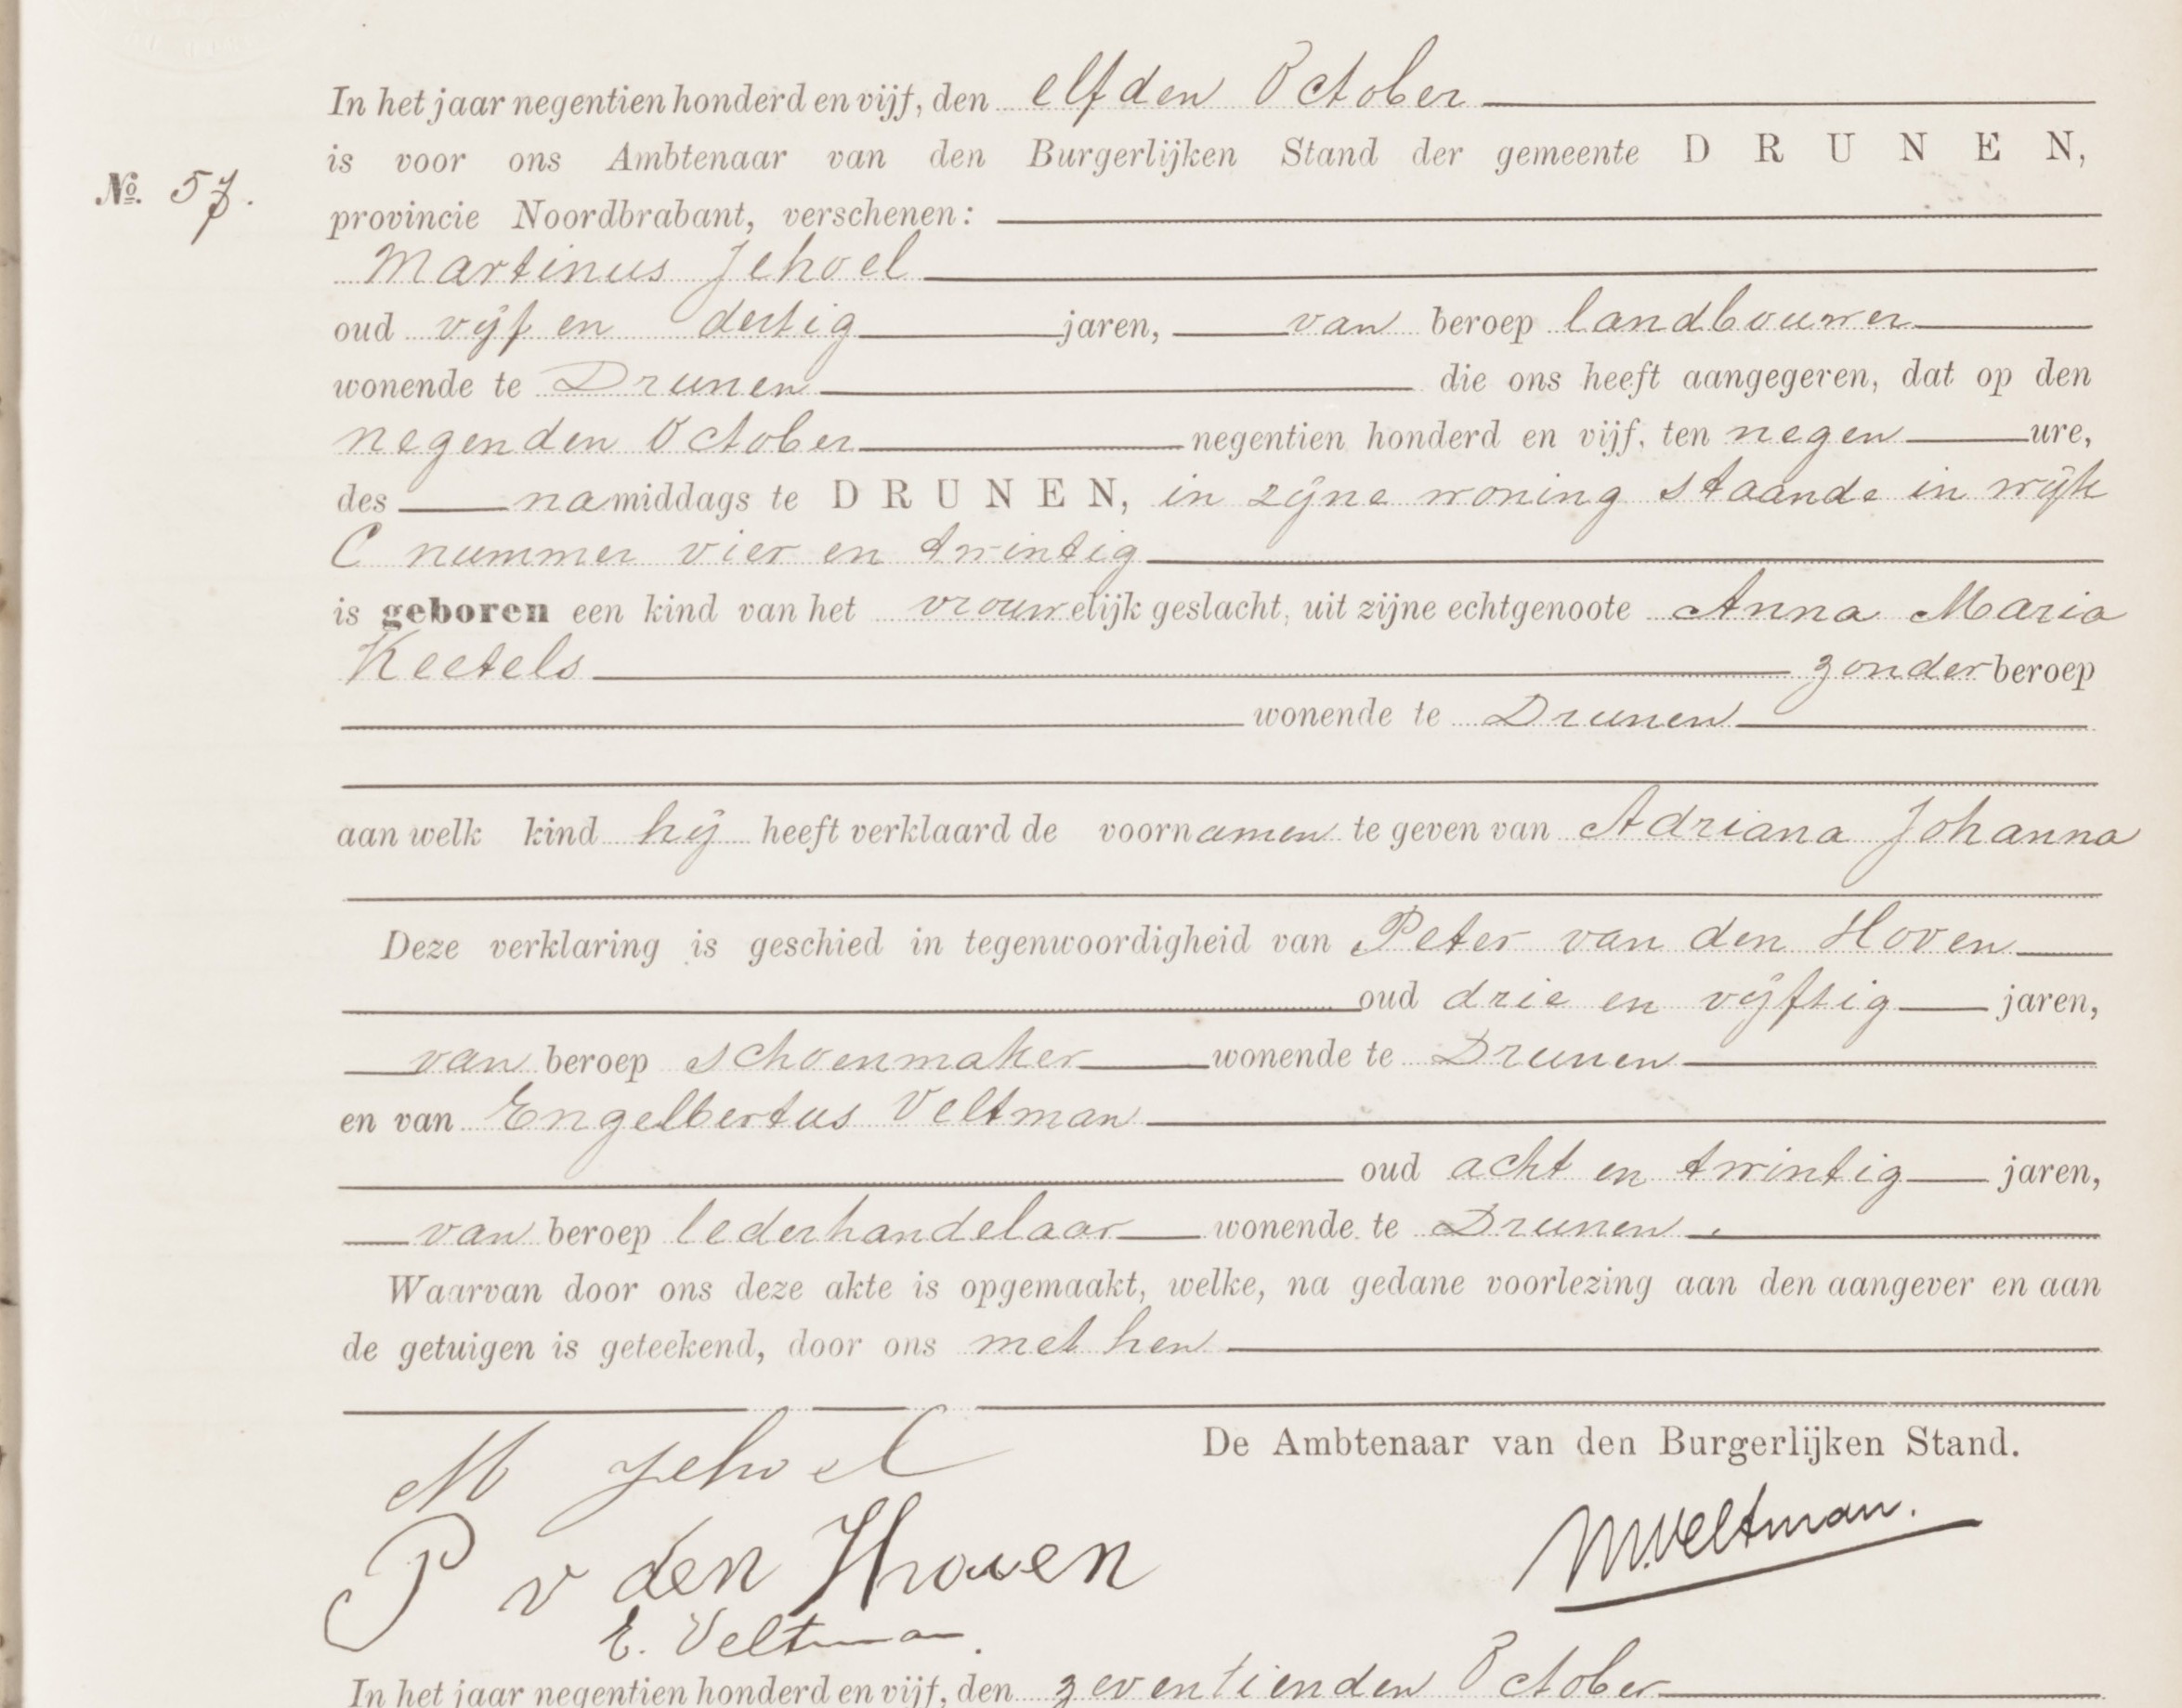 In het jaar negentien honderd en vijf, den elfden October
is voor ons Ambtenaar van den Burgerlijken Stand der gemeente DRUNEN,
No. 57.
provincie Noordbrabant, verschenen:
Martinus Jehoel
oud vijf en dertig jaren, van beroep landbouwer
wonende te Drunen die ons heeft aangegeven, dat op den
negenden October negentien honderd en vijf, ten negen ure,
des namiddags te DRUNEN, in zijne woning staande in wijk
C nummer vier en twintig
is geboren een kind van het vrouwelijk geslacht, uit zijne echtgenoote Anna Maria
Keetels zonder beroep
wonende te Drunen
aan welk kind hij heeft verklaard de voornamen te geven van Adriana Johanna
Deze verklaring is geschied in tegenwoordigheid van Peter van den Hoven
oud drie en vijftig jaren,
van beroep schoenmaker wonende te Drunen
en van Engelbertus Veltman
oud acht en twintig jaren,
van beroep lederhandelaar wonende te Drunen.
Waarvan door ons deze akte is opgemaakt, welke, na gedane voorlezing aan den aangever en aan
de getuigen is geteekend, door ons met hen
De Ambtenaar van den Burgerlijken Stand.
M Jehoel
M. Veltman.
P v den Hoven
E. Veltman.
In het jaar negentien honderd en vijf, den zeventienden October